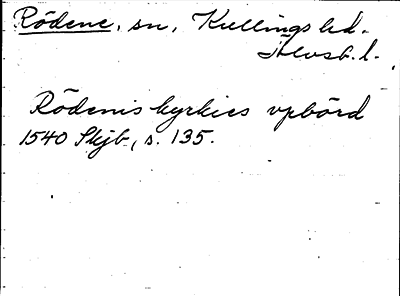 Rödene, sn, Kullings hd.
Älvsb. l.
Rödenis kyrkies vpbörd
1540 Skjb, s. 135.